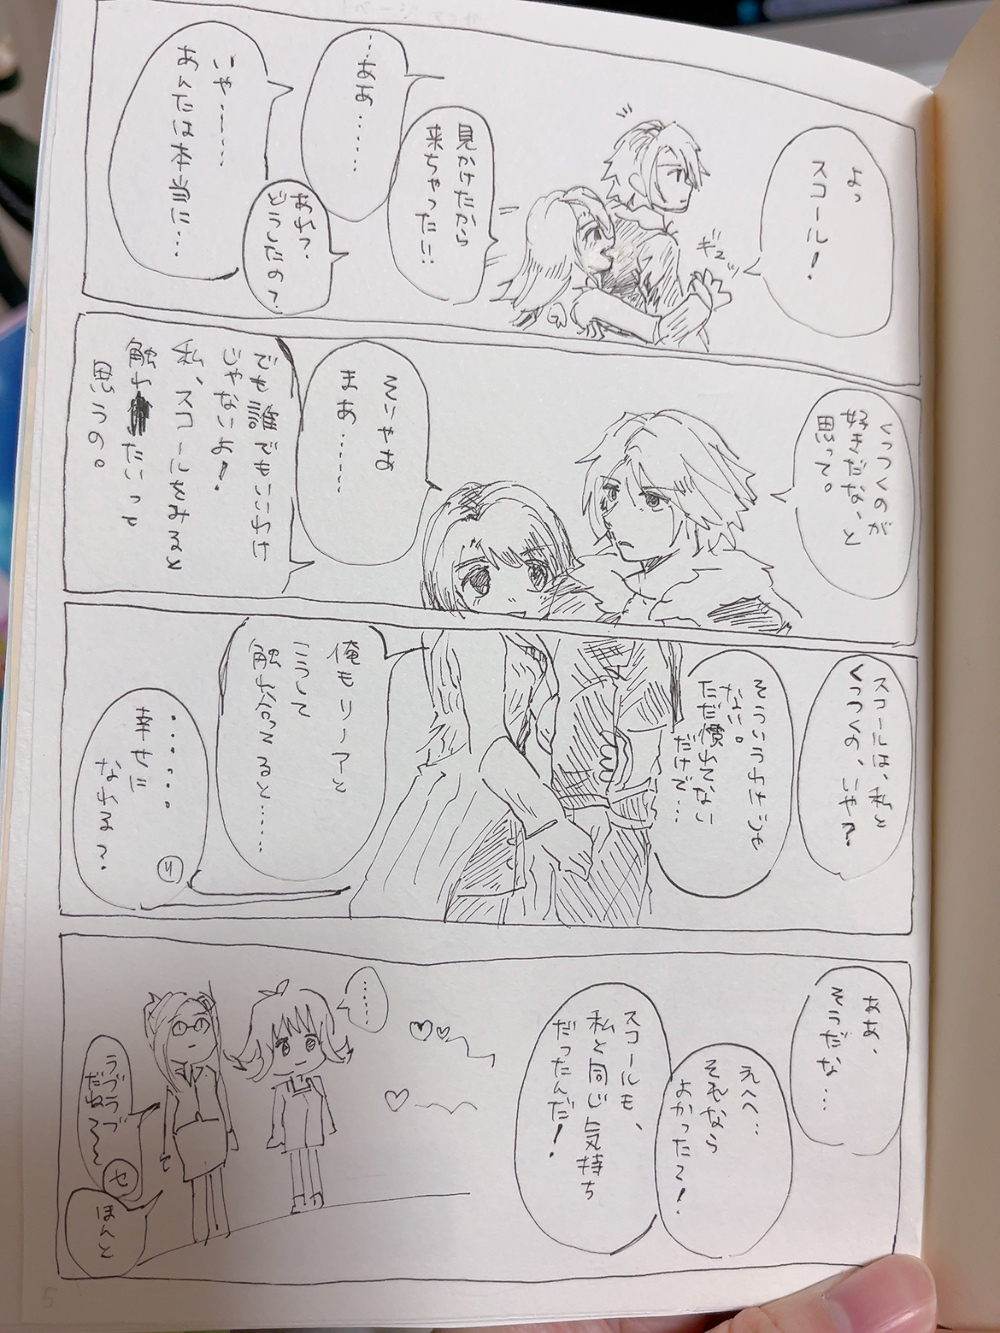 よっ
スコール!
ギュッ
見かけたから
来ちゃった!!
…ああ……
あれ?
どうしたの?
いや……
あんたは本当に…
くっつくのが
好きだな、と
思って。
そりゃあ
まあ……
でも誰でもいいわけ
じゃないよ!
私、スコールをみると
触れたいって
思うの。
スコールは、私と
くっつくの、いや?
そういうわけじゃ
ない。
ただ慣れてない
だけで…
俺もリノアと
こうして
触れ合ってると……
・・・・・
幸せに
なれる?
リ
ああ、
そうだな…
えへへ…
それなら
よかったて!
スコールも、
私と同じ気持ち
だったんだ!
……
ラブラブ
だね〜〜
セ
ほんと
5